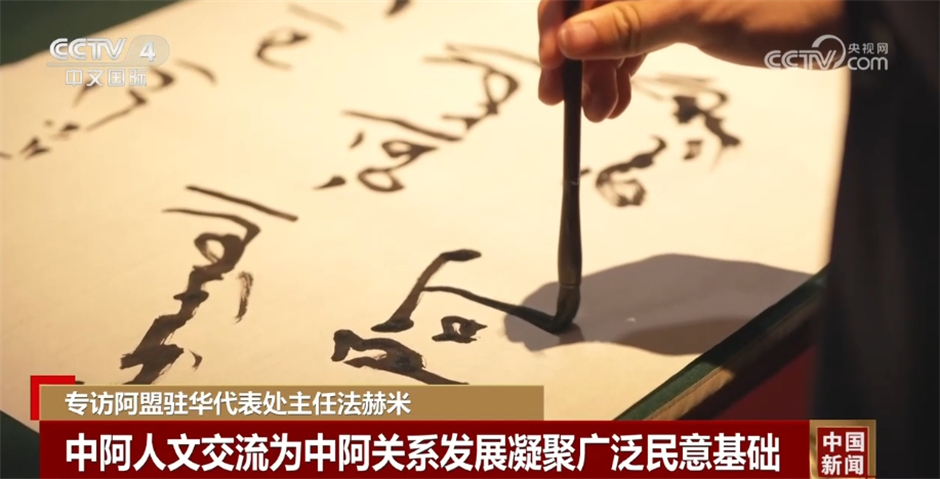 CCTV 4
中文国际
CCTV 央视网
com
الصداقة
专访阿盟驻华代表处主任法赫米
中阿人文交流为中阿关系发展凝聚广泛民意基础
中国
新闻